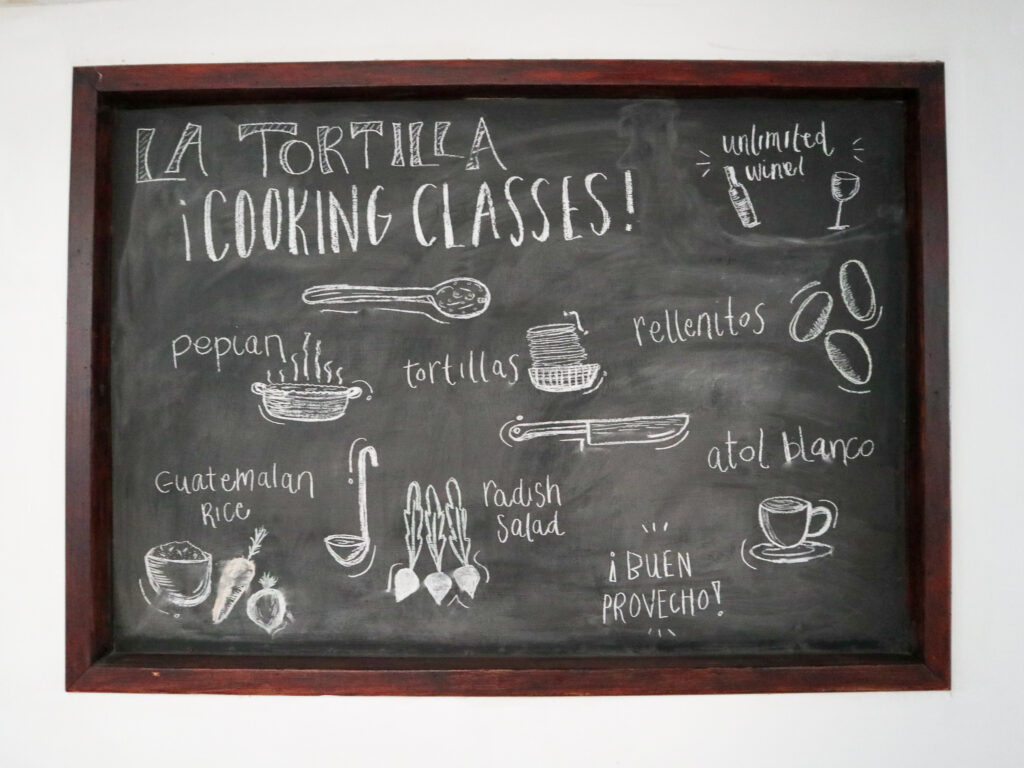 LA TORTILLA
¡COOKING CLASSES!
unlimited
wine!
pepian
tortillas
rellenitos
atol blanco
Guatemalan
RICE
radish
salad
¡BUEN
PROVECHO!